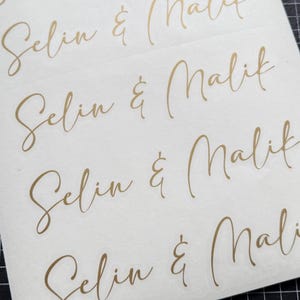 Selin & Malik
Selin & Malik
Selin & Malik
Selin & Mali